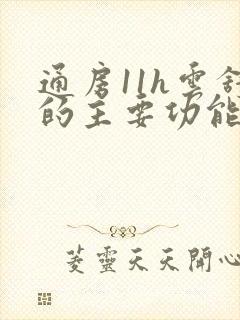 通房11h雲舒
的主要功能
菱靈天天開心